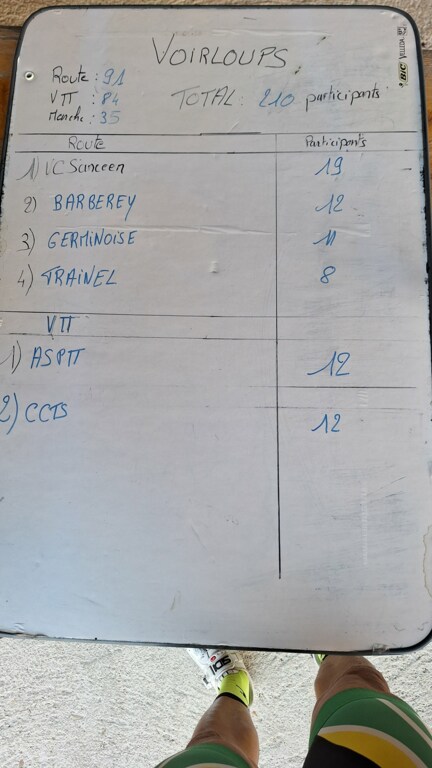 VOIRLOUPS
Route : 91
VTT : 84
Marche : 35
TOTAL : 210 participants
Route Participants
1) VC Sanceen 19
2) BARBEREY 12
3) GERMINOISE 11
4) TRAINEL 8
VTT
1) ASPTT 12
2) CCTS 12
BIC
SIDI